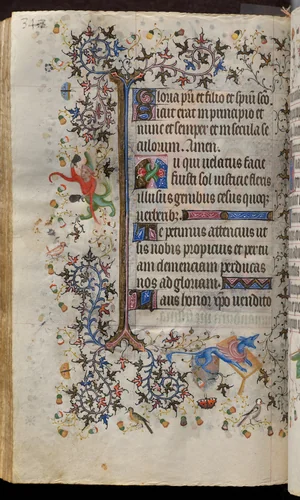 343
Gloria pri et filio et spiui sco
Sicut erat in principio et
nunc et semper et in secula se
culorum. Amen.
Qui uelatus facie
fuisti sol iusticie flexis
illusus genibus cesus quoq
uerberibz.
Te petimus attencius ut
sis nobis propicius et per tu
am clemenciam perducas
nos ad gloriam.
Laus honor xpo uendito